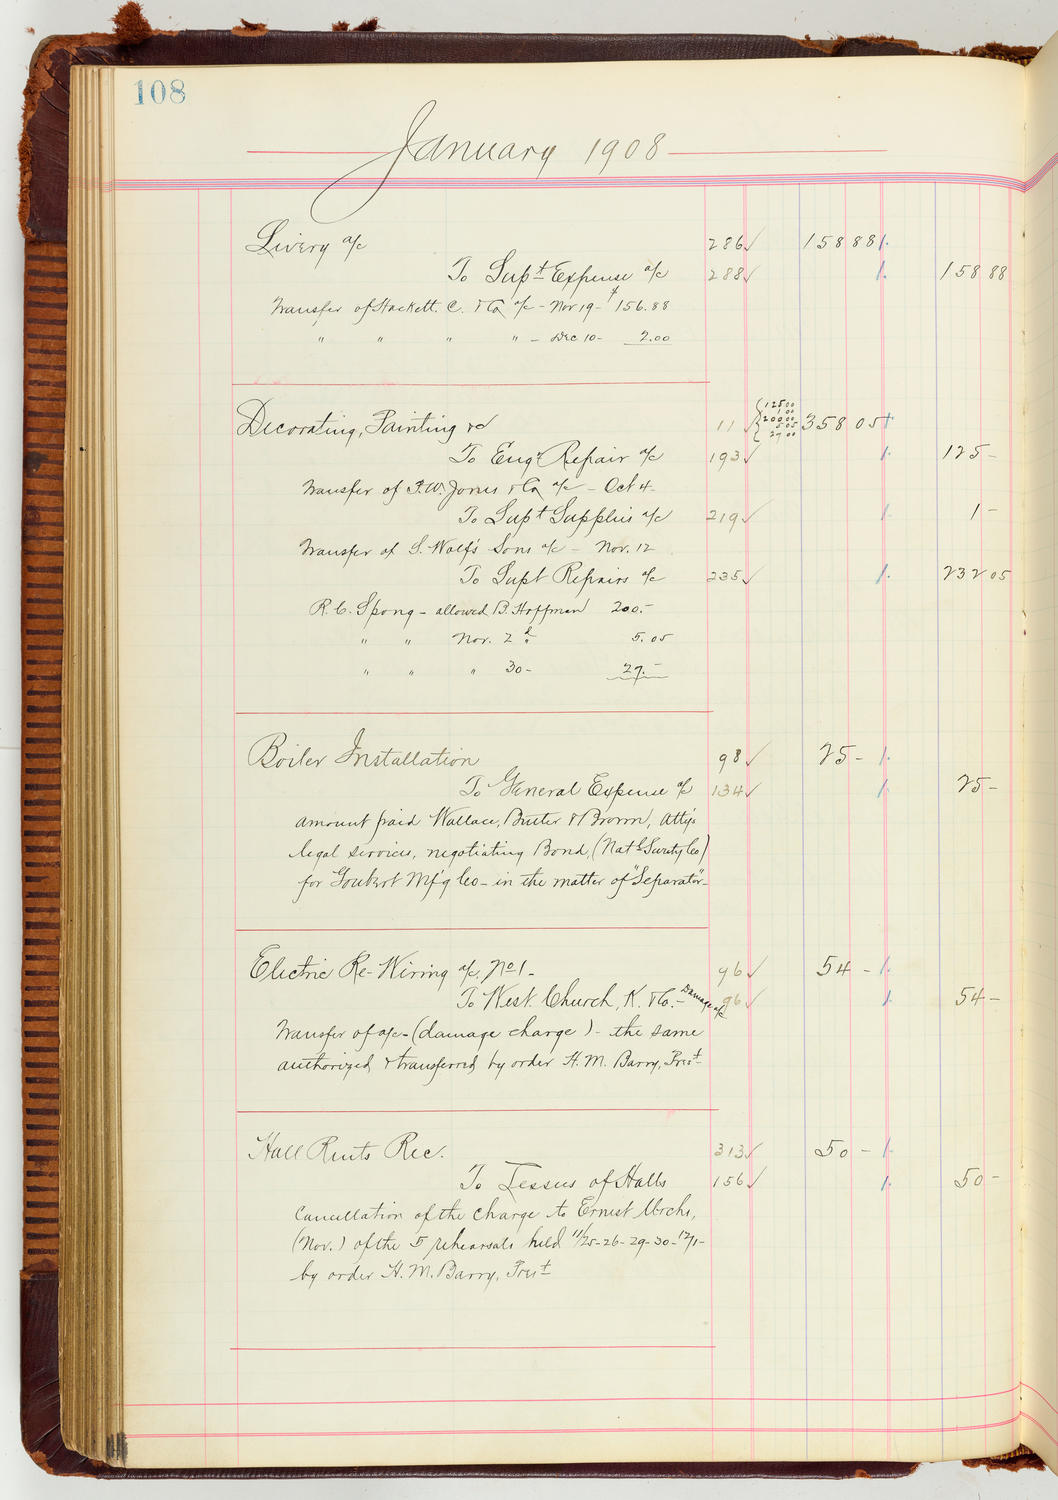 108
January 1908
Livery a/c 286 ✓ 158 88
To Supt Expense a/c 288 ✓ 158 88
Transfer of Hackett. C. & Co a/c - Nov 19 - $156.88
" " " " - Dec 10 - 2.00
Decorating, Painting &c 11 ✓ { 125 00 1 00 200 00 5 05 27 00 358 05
To Engr Repair a/c 193 ✓ 125 -
Transfer of F. W. Jones & Co a/c - Oct 4 -
To Supt Supplies a/c 219 ✓ 1 -
Transfer of S. Wolf's Sons a/c - Nov. 12
To Supt Repairs a/c 235 ✓ 232 05
R. C. Spong - allowed B. Hoffman 200. -
" " Nov. 2d 5.05
" " " 30 - 27. -
Boiler Installation 98 ✓ 25 -
To General Expense a/c 134 ✓ 25 -
amount paid Wallace, Butler & Brown, Att'ys
legal services, negotiating Bond, (Nat'l Surety Co)
for Goubert M'f'g Co - in the matter of "Separator" -
Electric Re-Wiring a/c. No 1 - 96 ✓ 54 -
To West. Church, K. & Co. - Damage a/c 96 ✓ 54 -
Transfer of a/c - (damage charge) - the same
authorized & transferred by order H. M. Barry, Prest -
Hall Rents Rec. 313 ✓ 50 -
To Lessees of Halls 156 ✓ 50 -
Cancellation of the charge to Ernest
(Nov.) of the 5 rehearsals held 11/25-26-29-30-12/1 -
by order H. M. Barry, Prest